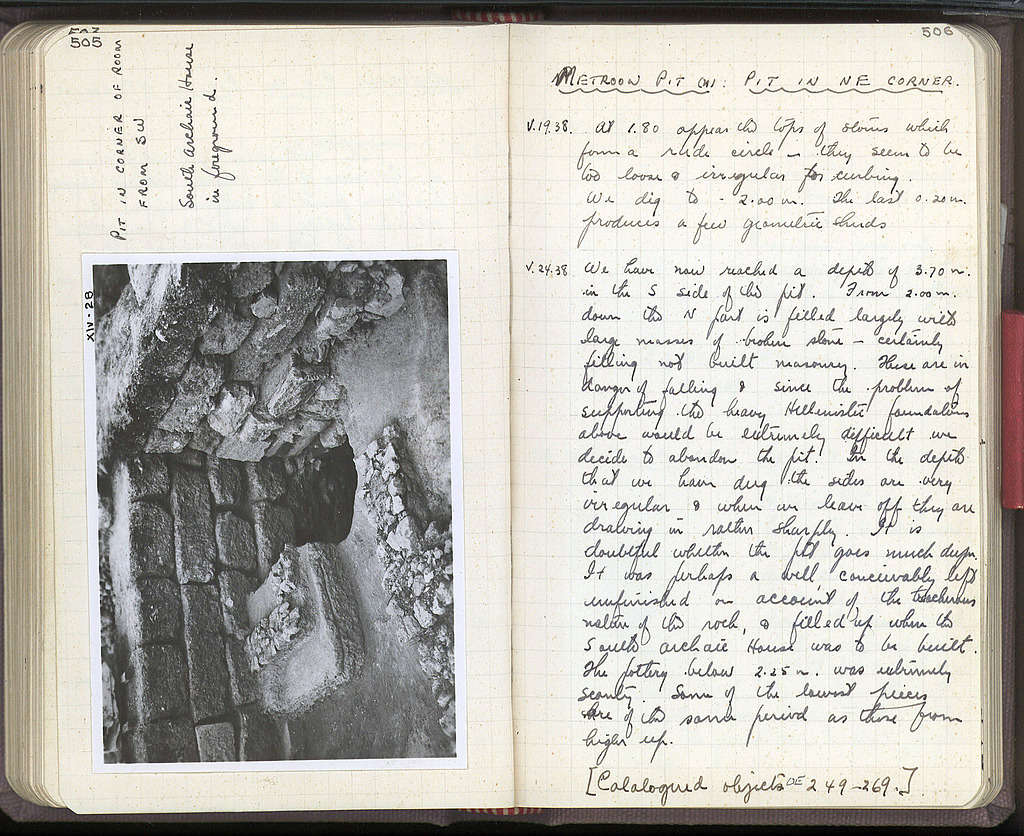 505
PIT IN CORNER OF ROOM
FROM SW
South Archaic House
in foreground.
XIV-28
506
METROON PIT (N): PIT IN NE CORNER.
V.19.38. At 1.80 appear the tops of stones which
form a rude circle – they seem to be
too loose & irregular for curbing.
We dig to - 2.00 m. The last 0.20 m.
produces a few geometric sherds
V.24.38 We have now reached a depth of 3.70 m.
in the S side of the pit. From 2.00 m.
down the N part is filled largely with
large masses of broken stone – certainly
filling not built masonry. These are in
danger of falling & since the problem of
supporting the heavy Hellenistic foundations
above would be extremely difficult we
decide to abandon the pit. In the depth
that we have dug the sides are very
irregular & when we leave off they are
drawing in rather sharply. It is
doubtful whether the pit goes much deeper.
It was perhaps a well, conceivably left
unfinished on account of the treacherous
nature of the rock, & filled up when the
South Archaic House was to be built.
The pottery below 2.25 m. was extremely
scanty. Some of the lowest pieces
are of the same period as those from
higher up.
[Catalogued objects OE 249-269.]